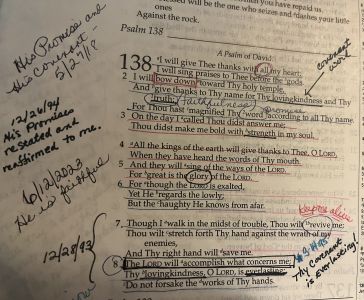 ones
Against the rock.
Psalm 138
A Psalm of David.
138 I will give Thee thanks with all my heart;
I will sing praises to Thee before the gods.
2 I will bow down toward Thy holy temple,
And give thanks to Thy name for Thy lovingkindness and Thy
truth;
Faithfulness
promise
For Thou hast magnified Thy word according to all Thy name.
3 On the day I called Thou didst answer me;
Thou didst make me bold with strength in my soul.
4 All the kings of the earth will give thanks to Thee, O LORD,
When they have heard the words of Thy mouth.
5 And they will sing of the ways of the LORD.
For great is the glory of the LORD.
6 For though the LORD is exalted,
Yet He regards the lowly;
But the haughty He knows from afar.
7 Though I walk in the midst of trouble, Thou wilt revive me;
Thou wilt stretch forth Thy hand against the wrath of my
enemies,
And Thy right hand will save me.
8 The LORD will accomplish what concerns me;
Thy lovingkindness, O LORD, is everlasting;
Do not forsake the works of Thy hands.
covenant
word
Keep me alive
Thy Covenant
is Everlasting.
His Promise and
His Covenant -
12/26/94
His Promises
restated and
reaffirmed to me.
6/12/2003
He is faithful
12/28/93